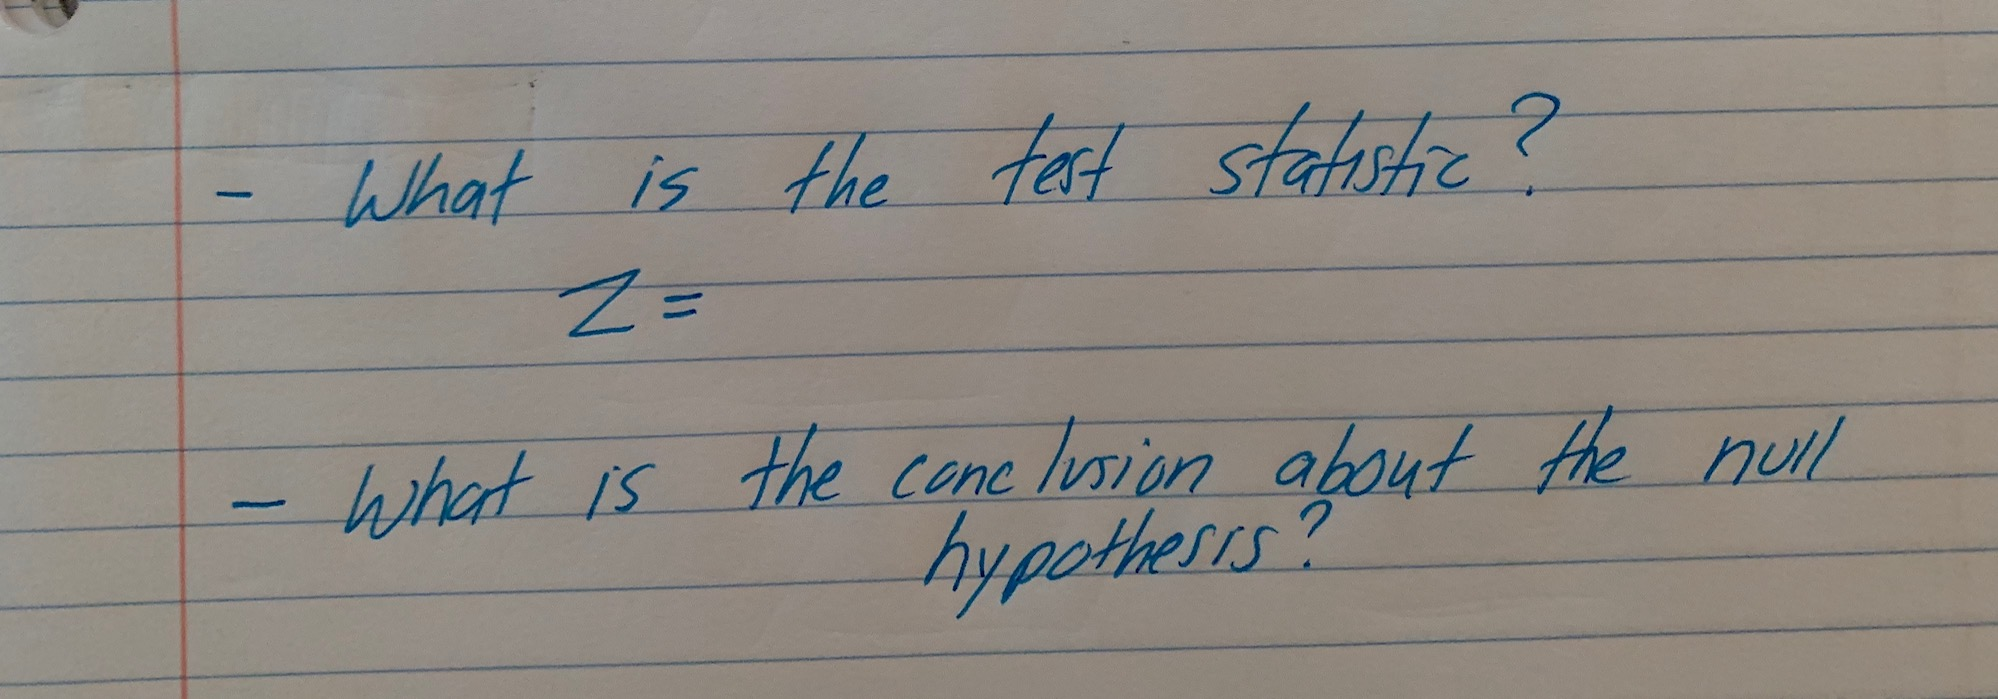 - What is the test statistic?
Z =
- What is the conclusion about the null
hypothesis?